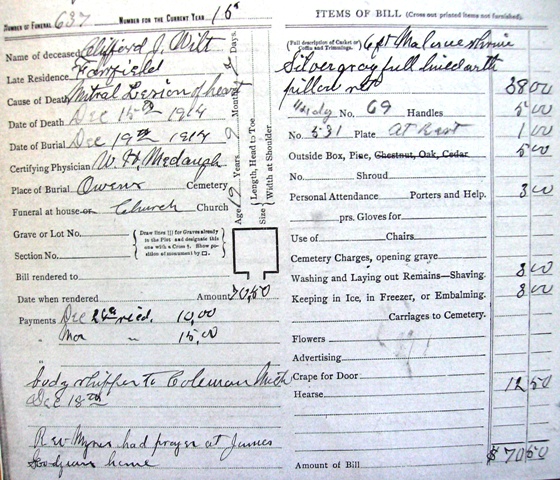 NUMBER OF FUNERAL 637 NUMBER FOR THE CURRENT YEAR 15
Name of deceased Clifford J. Wilt
Late Residence Fairfield
Cause of Death Mitral Lesion of heart
Date of Death Dec 15th 1914
Date of Burial Dec 19th 1914
Certifying Physician W. H. Medaugh
Place of Burial Owens Cemetery
Funeral at house or Church Church
Grave or Lot No.
Section No.
Draw lines ||| for Graves already in the Plot and designate this one with a Cross †. Show position of monument by □.
Bill rendered to
Date when rendered Amount 70.50
Payments Dec 24th recd. 10.00
" Nov " 15.00
"
body shipped to Coleman Mich
Dec 18th
Rev Myers had prayer at James
home
Age Years, Months, Days.
Size Length, Head to Toe
Width at Shoulder
ITEMS OF BILL (Cross out printed items not furnished).
(Full description of Casket or Coffin and Trimmings.)
Silver gray full lined with
pillow 38.00
No. 69 Handles 5.00
No. 531 Plate At Rest 1.00
Outside Box, Pine, Chestnut, Oak, Cedar 5.00
No. Shroud
Personal Attendance Porters and Help. 3.00
prs. Gloves for
Use of Chairs.
Cemetery Charges, opening grave
Washing and Laying out Remains—Shaving. 3.00
Keeping in Ice, in Freezer, or Embalming. 8.00
Carriages to Cemetery.
Flowers
Advertising
Crape for Door
Hearse 12.50
Amount of Bill $ 70.50